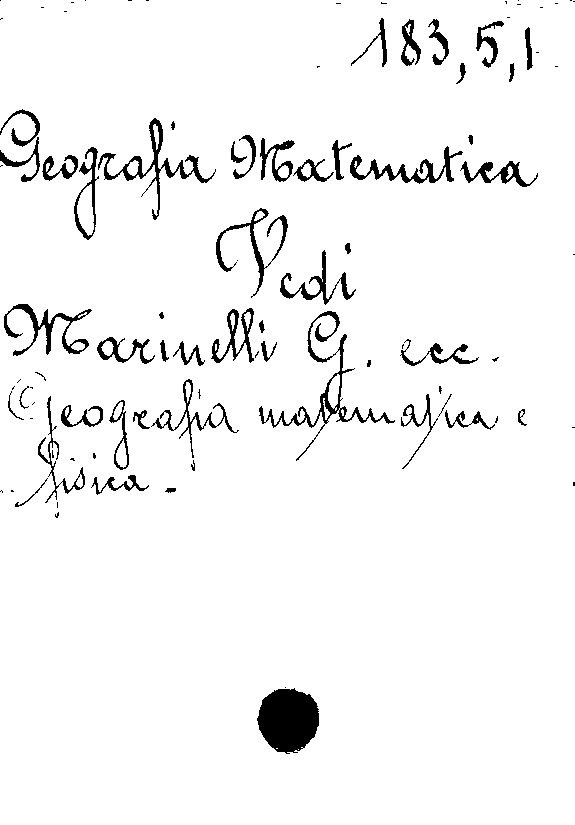 183,5,1
Geografia Matematica
Vedi
Marinelli G. ecc.
Geografia matematica e
fisica.-